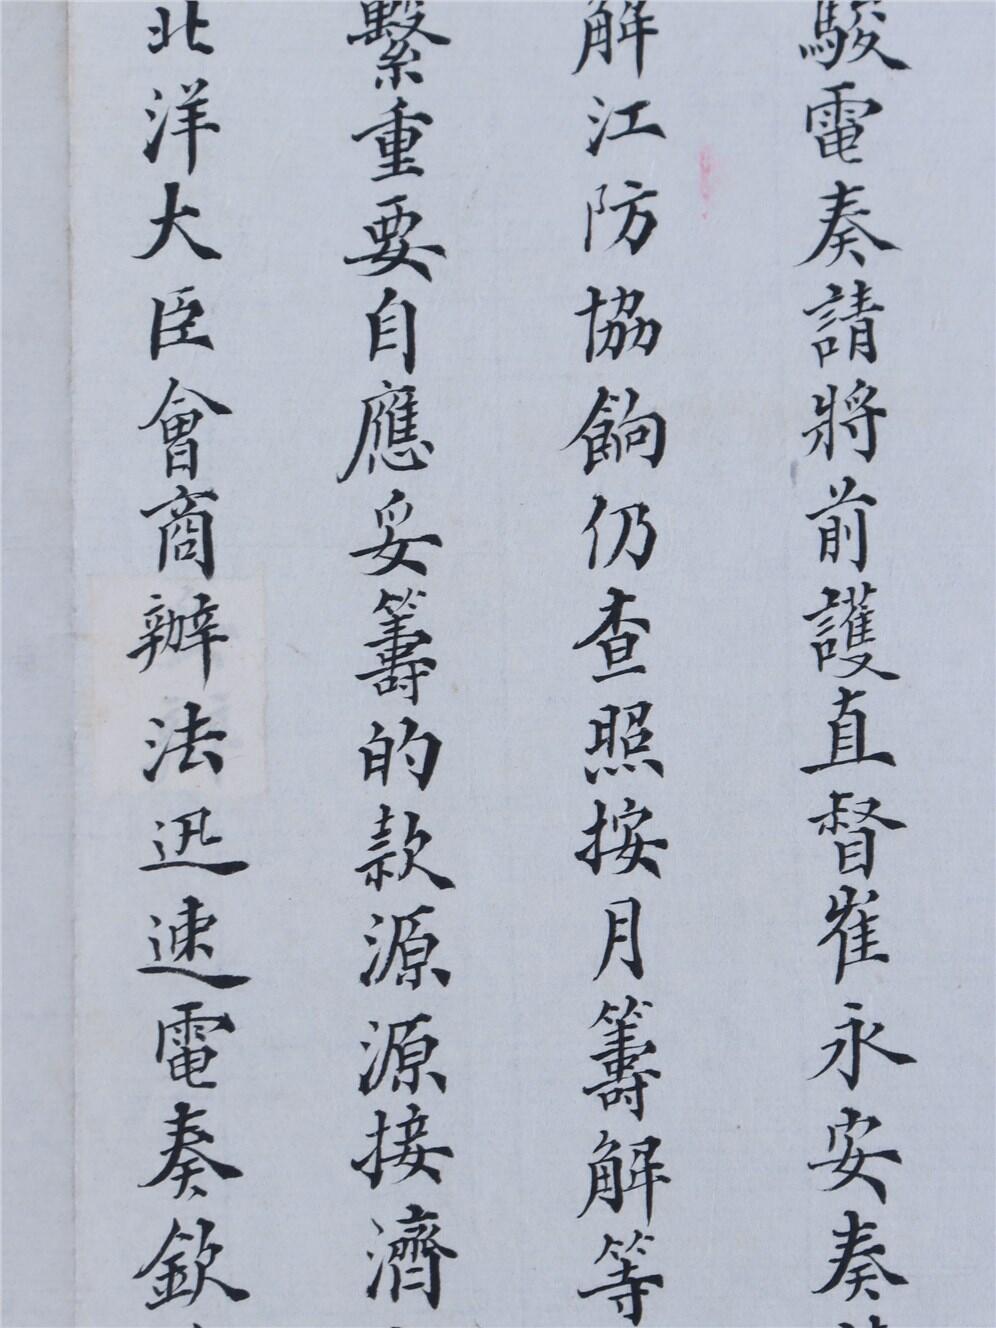 駿電奏請將前護直督崔永安奏
解江防協餉仍查照按月籌解等
繫重要自應妥籌的款源源接濟
北洋大臣會商辦法迅速電奏欽